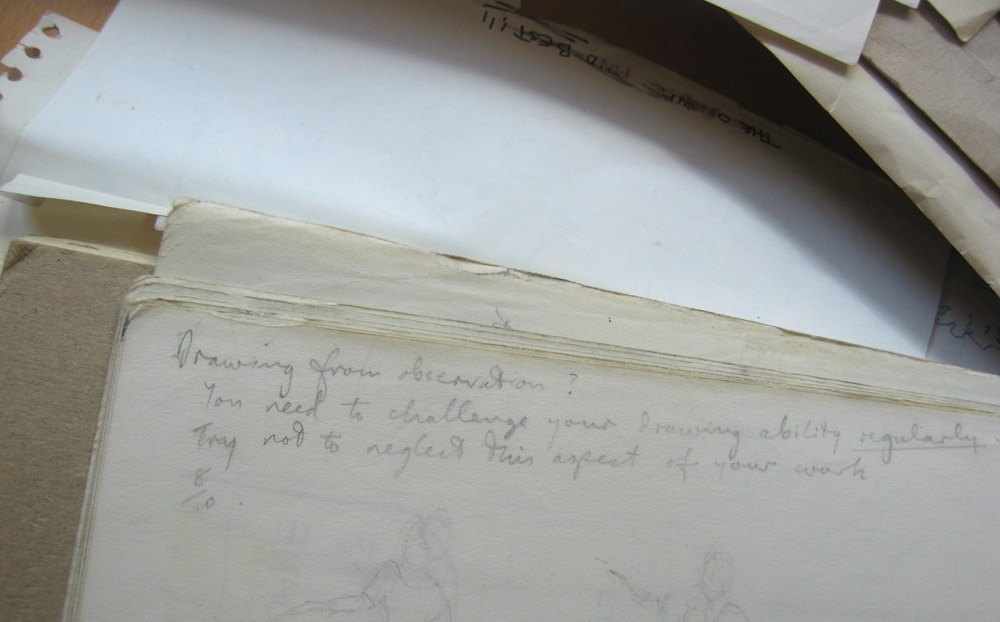 THE ORIGINAL AND BEST!!!
Drawing from observation ?
You need to challenge your drawing ability regularly.
Try not to neglect this aspect of your work
8/10.